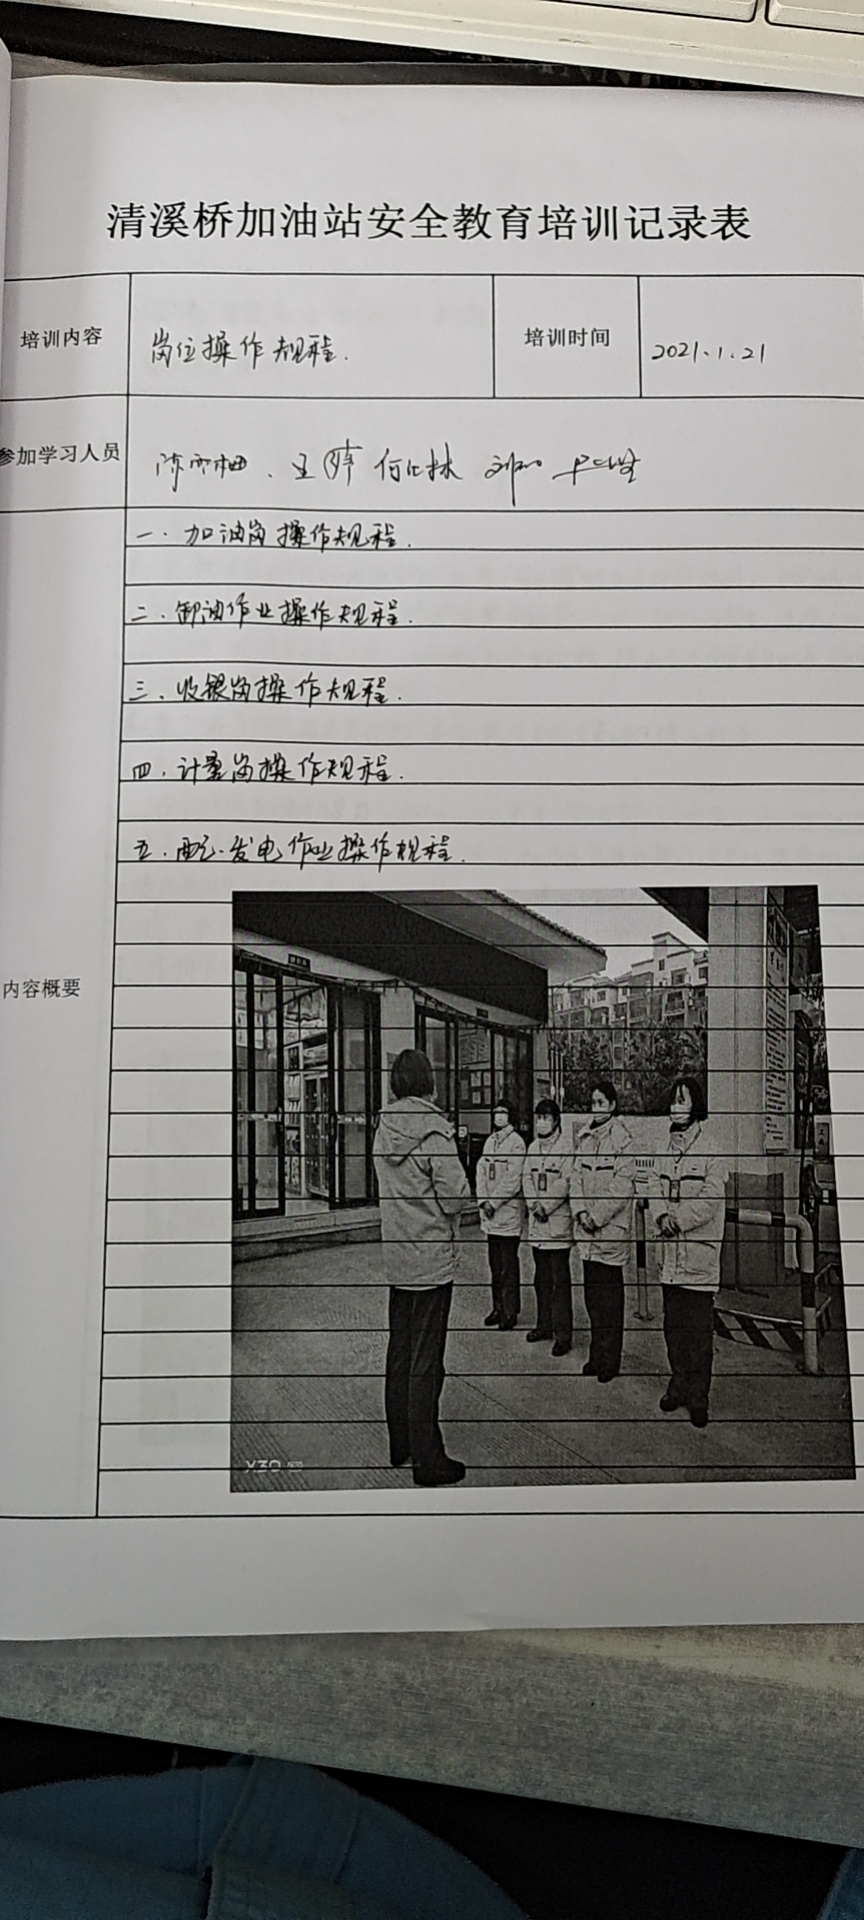 清溪桥加油站安全教育培训记录表
培训内容
岗位操作规程.
培训时间
2021.1.21
参加学习人员
一.加油岗操作规程.
二.卸油作业操作规程.
三.收银岗操作规程.
四.计量岗操作规程.
五.配.发电作业操作规程.
内容概要
X30